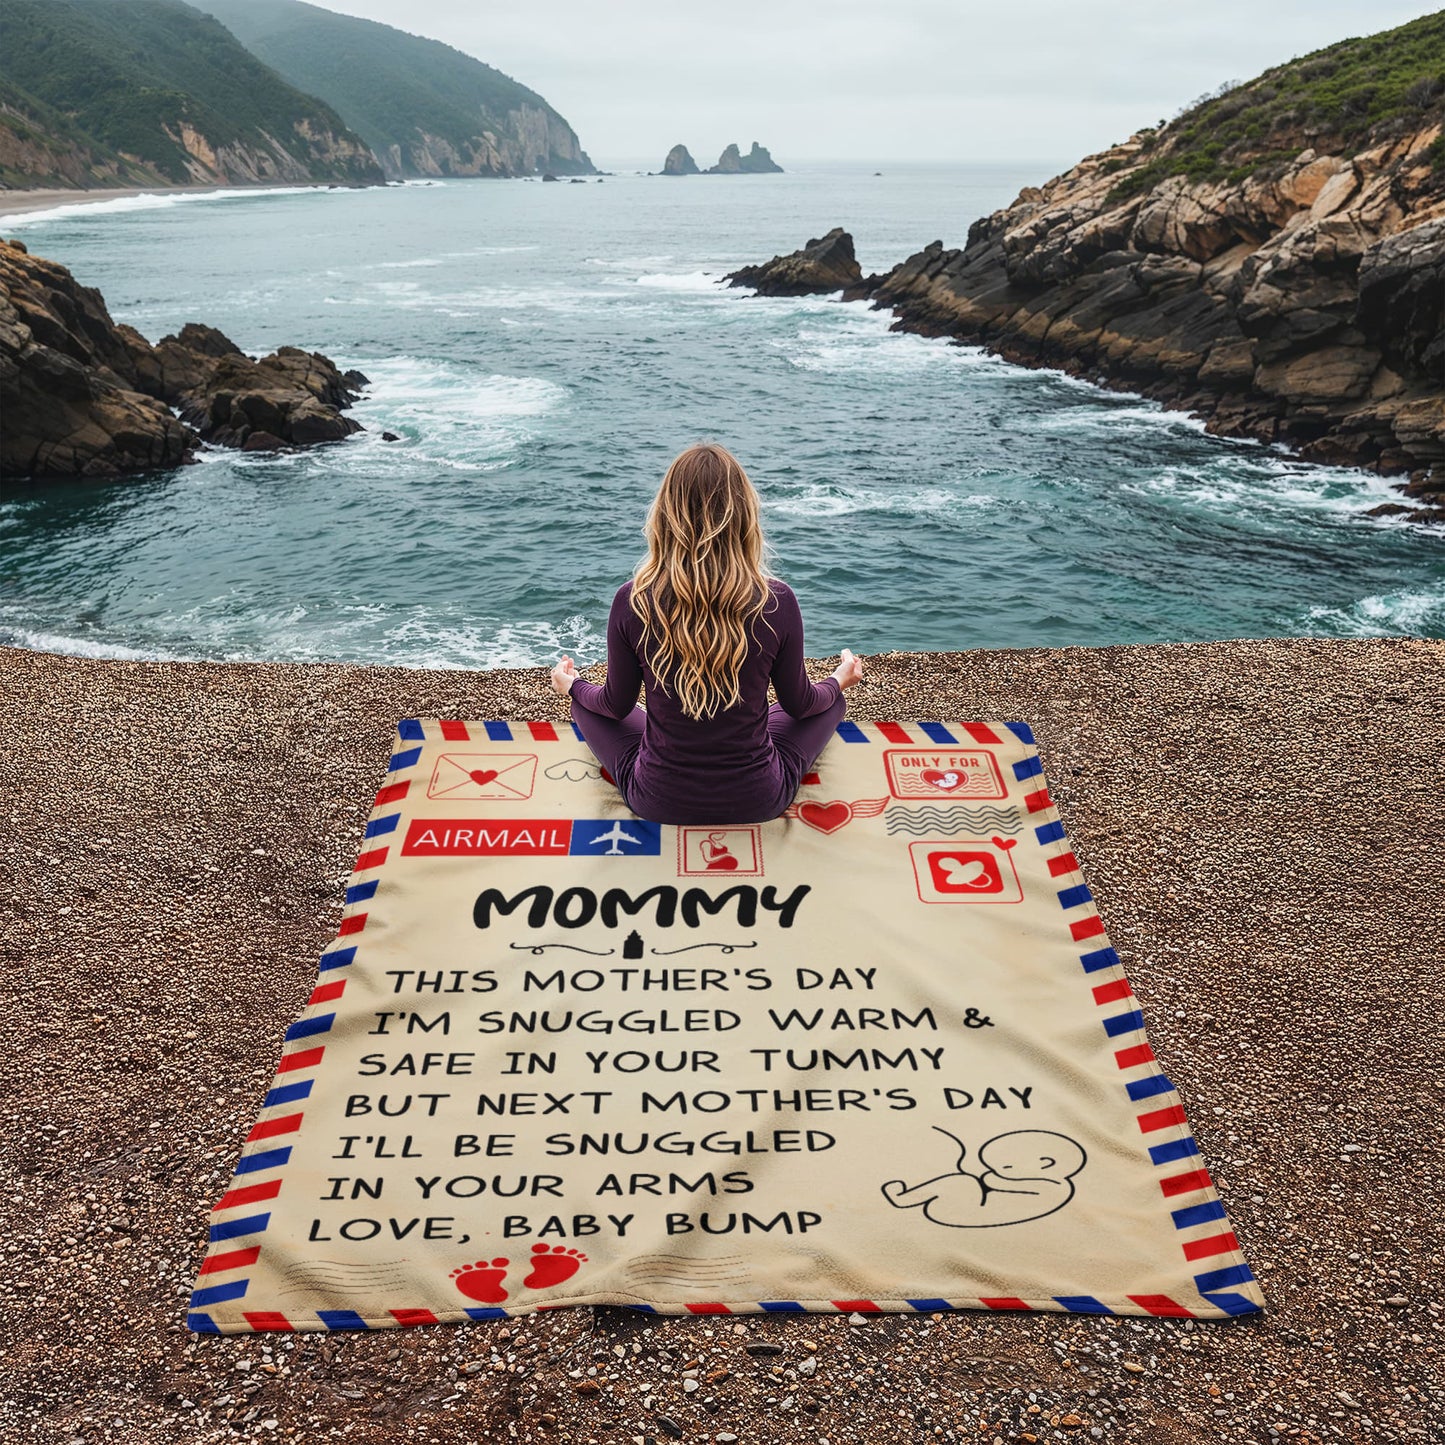 ONLY FOR
AIRMAIL
MOMMY
THIS MOTHER'S DAY
I'M SNUGGLED WARM &
SAFE IN YOUR TUMMY
BUT NEXT MOTHER'S DAY
I'LL BE SNUGGLED
IN YOUR ARMS
LOVE, BABY BUMP